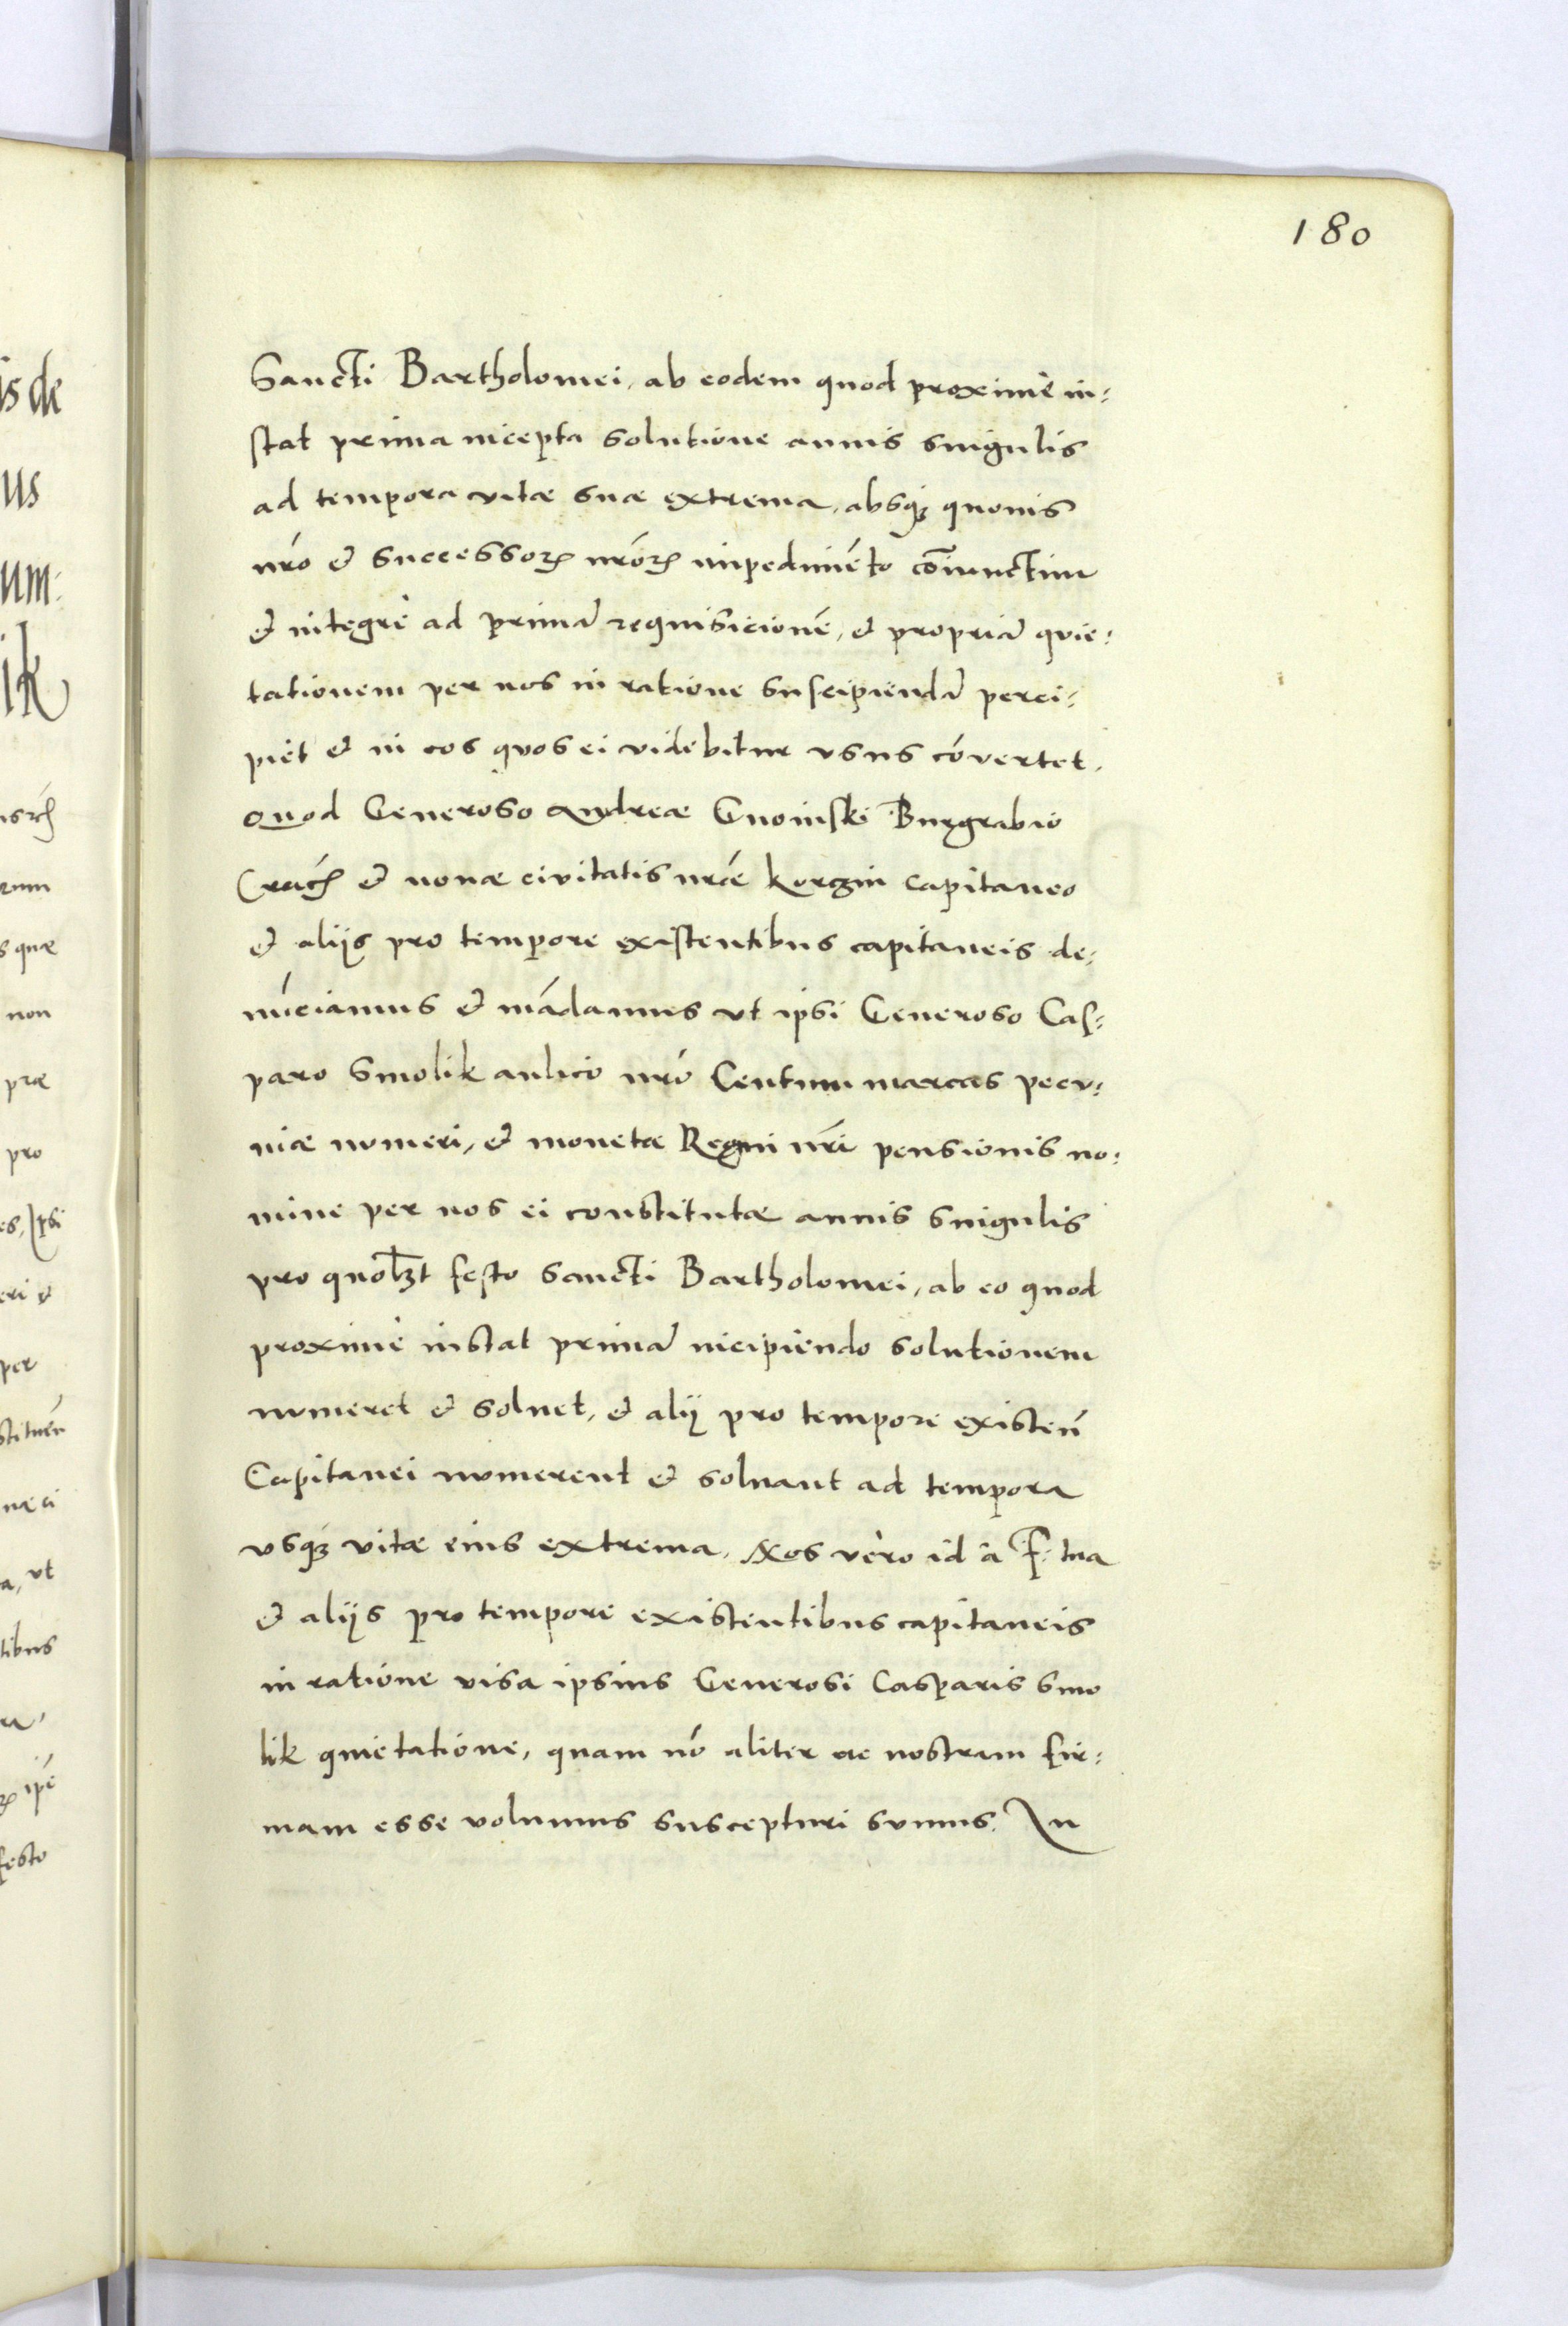 180
Sancti Bartholomei, ab eodem quod proxime in:
stat prima incepta solutione annis singulis
ad tempora vitæ suæ extrema, absqꝫ quouis
nr̃o et successorꝝ nr̃orꝝ impedimẽto cõiunctim
et integrè ad primã requisicionẽ, et propriã quie:
tationem per nos in ratione suscipiendã perci:
piet et in eos quos ei videbitur vsus cõvertet.
Quod Generoso Andreæ Gnoinski Burgrabio
Cracꝭ et nouæ civitatis nr̃æ Korczin capitaneo
et alijs pro tempore existentibus capitaneis de:
nũciamus et mãdamus vt ipsi Generoso Cas:
paro Smolik aulico nr̃o Centum marcas pecu:
niæ numeri, et monetæ Regni nr̃i pensionis no:
mine per nos ei constitutæ annis singulis
pro quolꝫt festo Sancti Bartholomei, ab eo quod
proxime instat primã incipiendo solutionem
numeret et soluet, et alij pro tempore existeñ
Capitanei numerent et soluant ad tempora
vsqꝫ vitæ eius extrema. Nos vero id à F. tua
et alijs pro tempore existentibus capitaneis
in ratione visa ipsius Generosi Casparis Smo
lik quietatione, quam nõ aliter ac nostram fir:
mam esse volumus suscepturi sumus. In
is de
us
um:
ik
rum
s quæ
non
præ
pro
es, Ipsi
eri et
per
stituen
næ ci
a, vt
tibus
ipẽ
festo